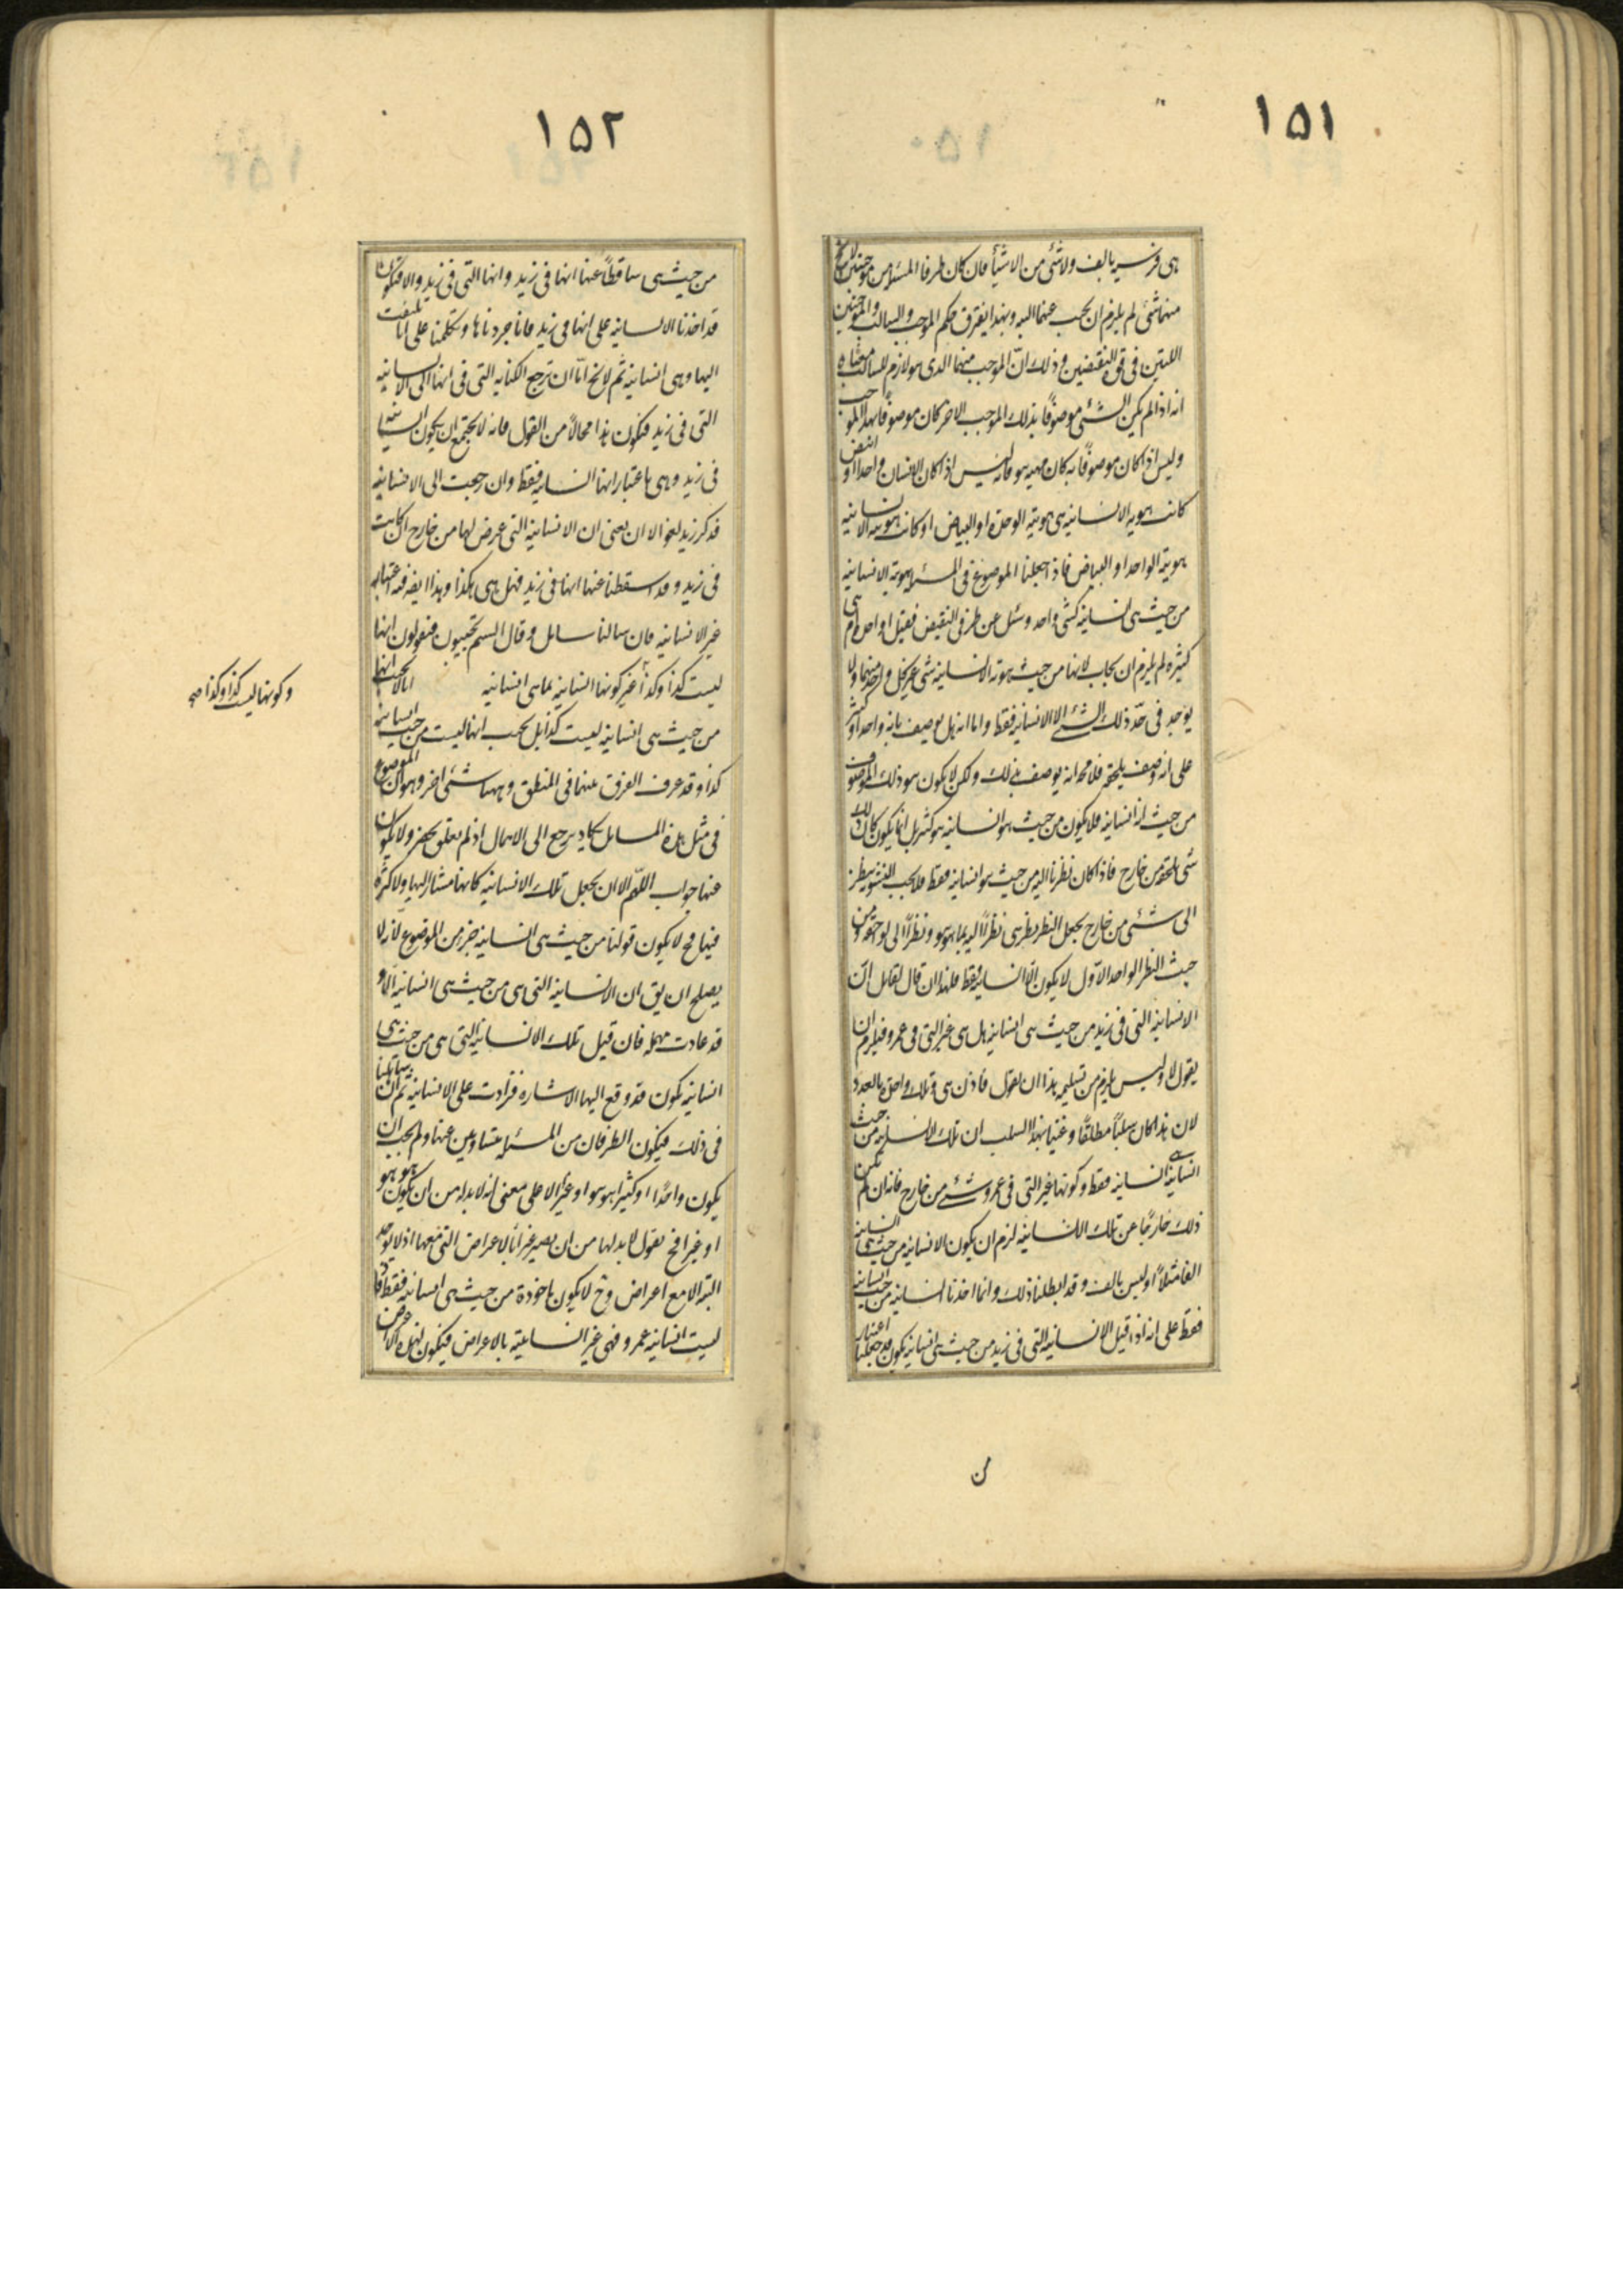 ١٥١
هى فرسيه بالف ولا شئ من الاشيأ فان كان طرفا المسئلة من موجبتين لا يخ
منهما شئ لم يلزم ان يجب عنهما البته وبهذا يفترق حكم الموجب والسالب والموجبتين
اللتين فى قوة النقيضين وذلك انّ الموجب منهما الذى هو لازم للسالب معناه
انه اذا لم يكن الشئ موصوفًا بذلك الموجب الاخر كان موصوفا بهذا الموجب
وليس اذا كان موصوفًا به كان مهيته هو فانه ليس اذا كان الانسان واحدا او ابيض
كانت هويه الانسانيه هى هويته الوحدة او البياض او كانت هويته الانسانيه
هويته الواحد او البياض فاذا جعلنا الموضوع فى المسئلة هوية الانسانيه
من حيث هى انسانية كشئ واحد وسئل عن طرفى النقيض فقيل اواحد هى ام
كثيره لم يلزم ان يجاب لانها من حيث هوية الانسانية شئ غير كل واحد منهما ولا
يوجد فى حدّ ذلك الشئ الا الانسانية فقط واما انه هل يوصف بانه واحد او كثير
على انه وصف يلحقه فلا محة انه يوصف بذلك ولكن لا يكون هو ذلك الموصوف
من حيث له انسانيه فلا يكون من حيث هو انسانيه هو كثير بل انما يكون كان ذلك
شئ يلحقه من خارج فاذا كان نظرنا اليه من حيث هو انسانيه فقط فلا يجب ان نشوبه بنظر
الى شئ من خارج يجعل النظر نظرين نظرًا اليه بما هو هو ونظرًا الى لواحقه ومن
حيث النظر الواحد الاوّل لا يكون الّا انسانية فقط فلهذا ان قال لقايل انّ
الانسانية التى فى زيد من حيث هى انسانية هل هى غير التى فى عمرو فيلزم ان
يقول لا وليس يلزم من تسليمه هذا ان يقول فاذن هى وتلك واحدة بالعدد
لان هذا كان سلبًا مطلقًا وعنينا بهذا السلب ان تلك الانسانيه من حيث
هى انسانية انسانيه فقط وكونها غير التى فى عمرو شئ من خارج فانه ان لم يكن
ذلك خارجًا عن تلك الانسانية لزم ان يكون الانسانيه من حيث هى انسانيه
الفا مثلًا او ليس بالف وقد ابطلنا ذلك وانما اخذنا انسانيه من حيث هى انسانيه
فقط على انه اذا قيل الانسانيه التى فى زيد من حيث هى انسانيه يكون قد جعلنا اعتبارا
من
١٥٢
من حيث هى ساقطًا عنها انها فى زيد وانها التى فى زيد والا فيكون
قد اخذنا الانسانيه على انها فى زيد فانا جردناها وتكلمنا على انا نلتفت
اليها وهى انسانيه ثم لا يخ امّا ان ترجع الكنايه التى فى انها الى الانسانيه
التى فى زيد فيكون هذا محالًا من القول فانه لا يجتمع ان يكون انسانية
فى زيد وهى باعتبار انها انسانيه فقط وان رجعت الى الانسانيه
فذكر زيد لغو الا ان يعنى ان الانسانيه التى عرض لها من خارج ان كانت
فى زيد وقد اسقطنا عنها انها فى زيد فهل هى هكذا وهذا ايضا فيه اعتبار
غير الانسانيه فان سالنا سايل وقال الستم تجيبون فتقولون انها
ليست كذا وكذا غير كونها انسانيه بما هى انسانيه
انا لا نجيب انها
من حيث هى انسانيه ليست كذا بل نجيب انها ليست من حيث هى انسانيه
كذا وقد عرف الفرق بينهما فى المنطق وههنا شئ اخر وهو ان الموضوع
فى مثل هذه المسايل يكاد يرجع الى الاهمال اذا لم يعلق بحصر ولا يكون
عنها جواب اللّهم الا ان يجعل تلك الانسانيه كانها مشار اليها ولا كثرة
فيها فح لا يكون قولنا من حيث هى انسانيه جزء من الموضوع لانه لا
يصلح ان يق ان الانسانية التى هى من حيث هى انسانيه الا و
قد عادت مهملة فان قيل تلك الانسانية التى هى من حيث هى
انسانية يكون قد وقع اليها الاشاره فزادت على الانسانيه ثم ان ساهلنا
فى ذلك فيكون الطرفان من المسئله متساويين عنها ولم يجب ان
يكون واحدًا او كثيرا هو هو او غيرًا الا على معنى انه لا بد له من ان يكون هو هو
او غيرا فح نقول لا بد لها من ان يصير غيرا بالاعراض التى معها اذ لا يوجد
البتّه الا مع اعراض وح لا يكون ماخوذة من حيث هى انسانيه فقط فاذ
ليست انسانيه عمرو فهى غير انسانيته بالاعراض فيكون لهذه الاعراض
وكونها ليست كذا وكذا صح